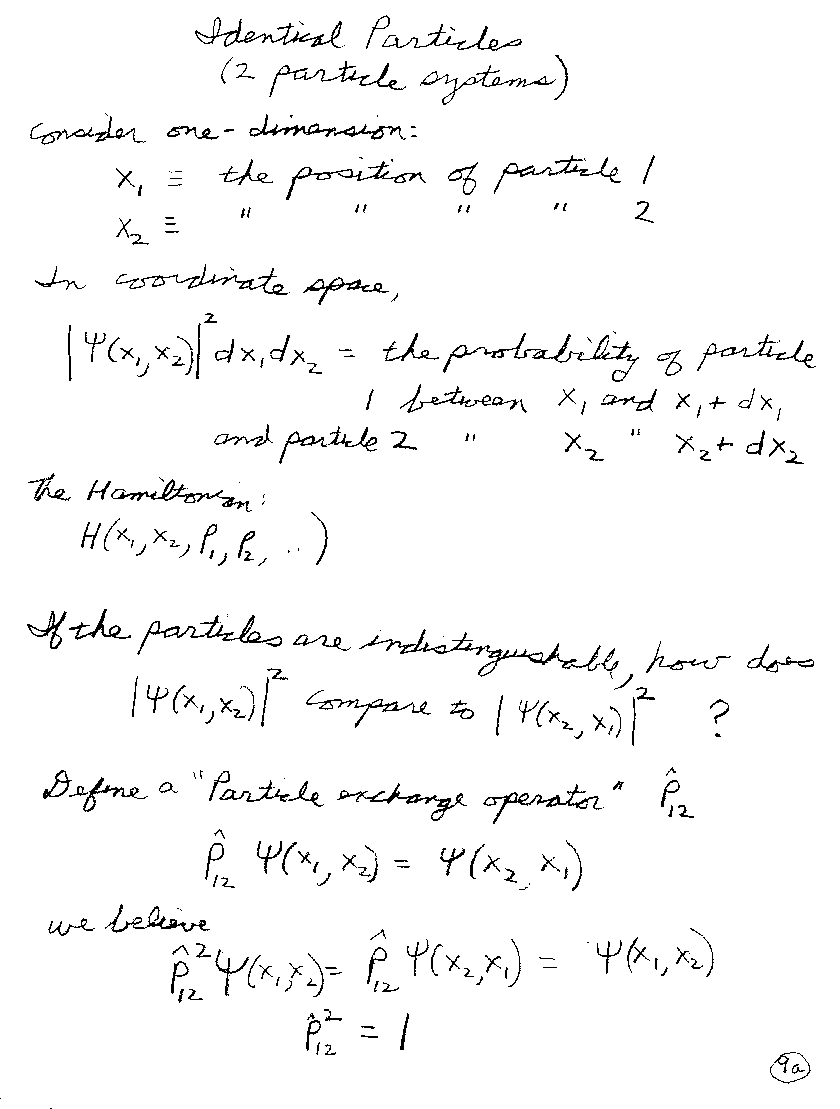 Identical Particles
(2 particle systems)
Consider one-dimension:
x₁ ≡ the position of particle 1
x₂ ≡ " " " " 2
In coordinate space,
|Ψ(x₁,x₂)|² dx₁dx₂ = the probability of particle
1 between x₁ and x₁+ dx₁
and particle 2 " x₂ " x₂+ dx₂
The Hamiltonian:
H(x₁, x₂, P₁, P₂, ..)
If the particles are indistinguishable, how does
|Ψ(x₁,x₂)|² compare to |Ψ(x₂,x₁)|² ?
Define a "Particle exchange operator" P̂₁₂
P̂₁₂ Ψ(x₁, x₂) = Ψ(x₂, x₁)
we believe
P̂₁₂² Ψ(x₁,x₂) = P̂₁₂ Ψ(x₂,x₁) = Ψ(x₁,x₂)
P̂₁₂² = 1
9a